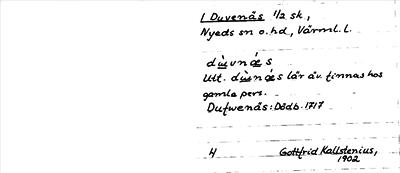 1 Duvenäs 1/2 sk.,
Nyeds sn o. hd, Värml. l.
Utt. lär äv. finnas hos
gamla pers.
Dufwenäs: Dödb. 1717
H Gottfrid Kallstenius,
1902